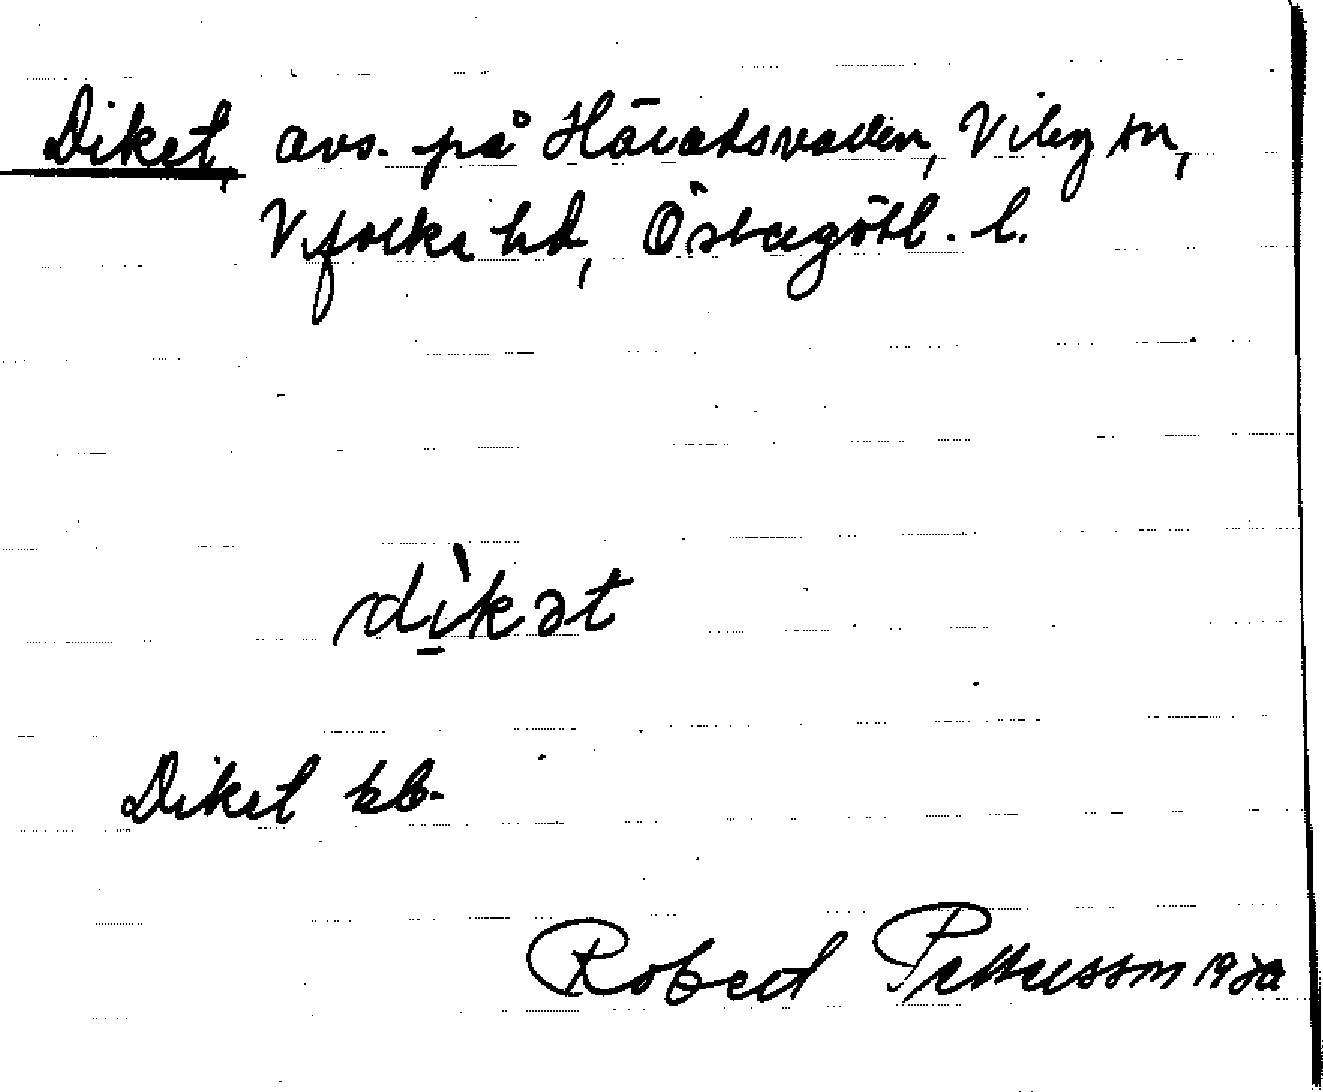 Diket, avs. på Hävadsvaden, Viby sn,
Vifolka hd, Östergötl. l.
dìkət
Diket kb.
Robert Pettersson